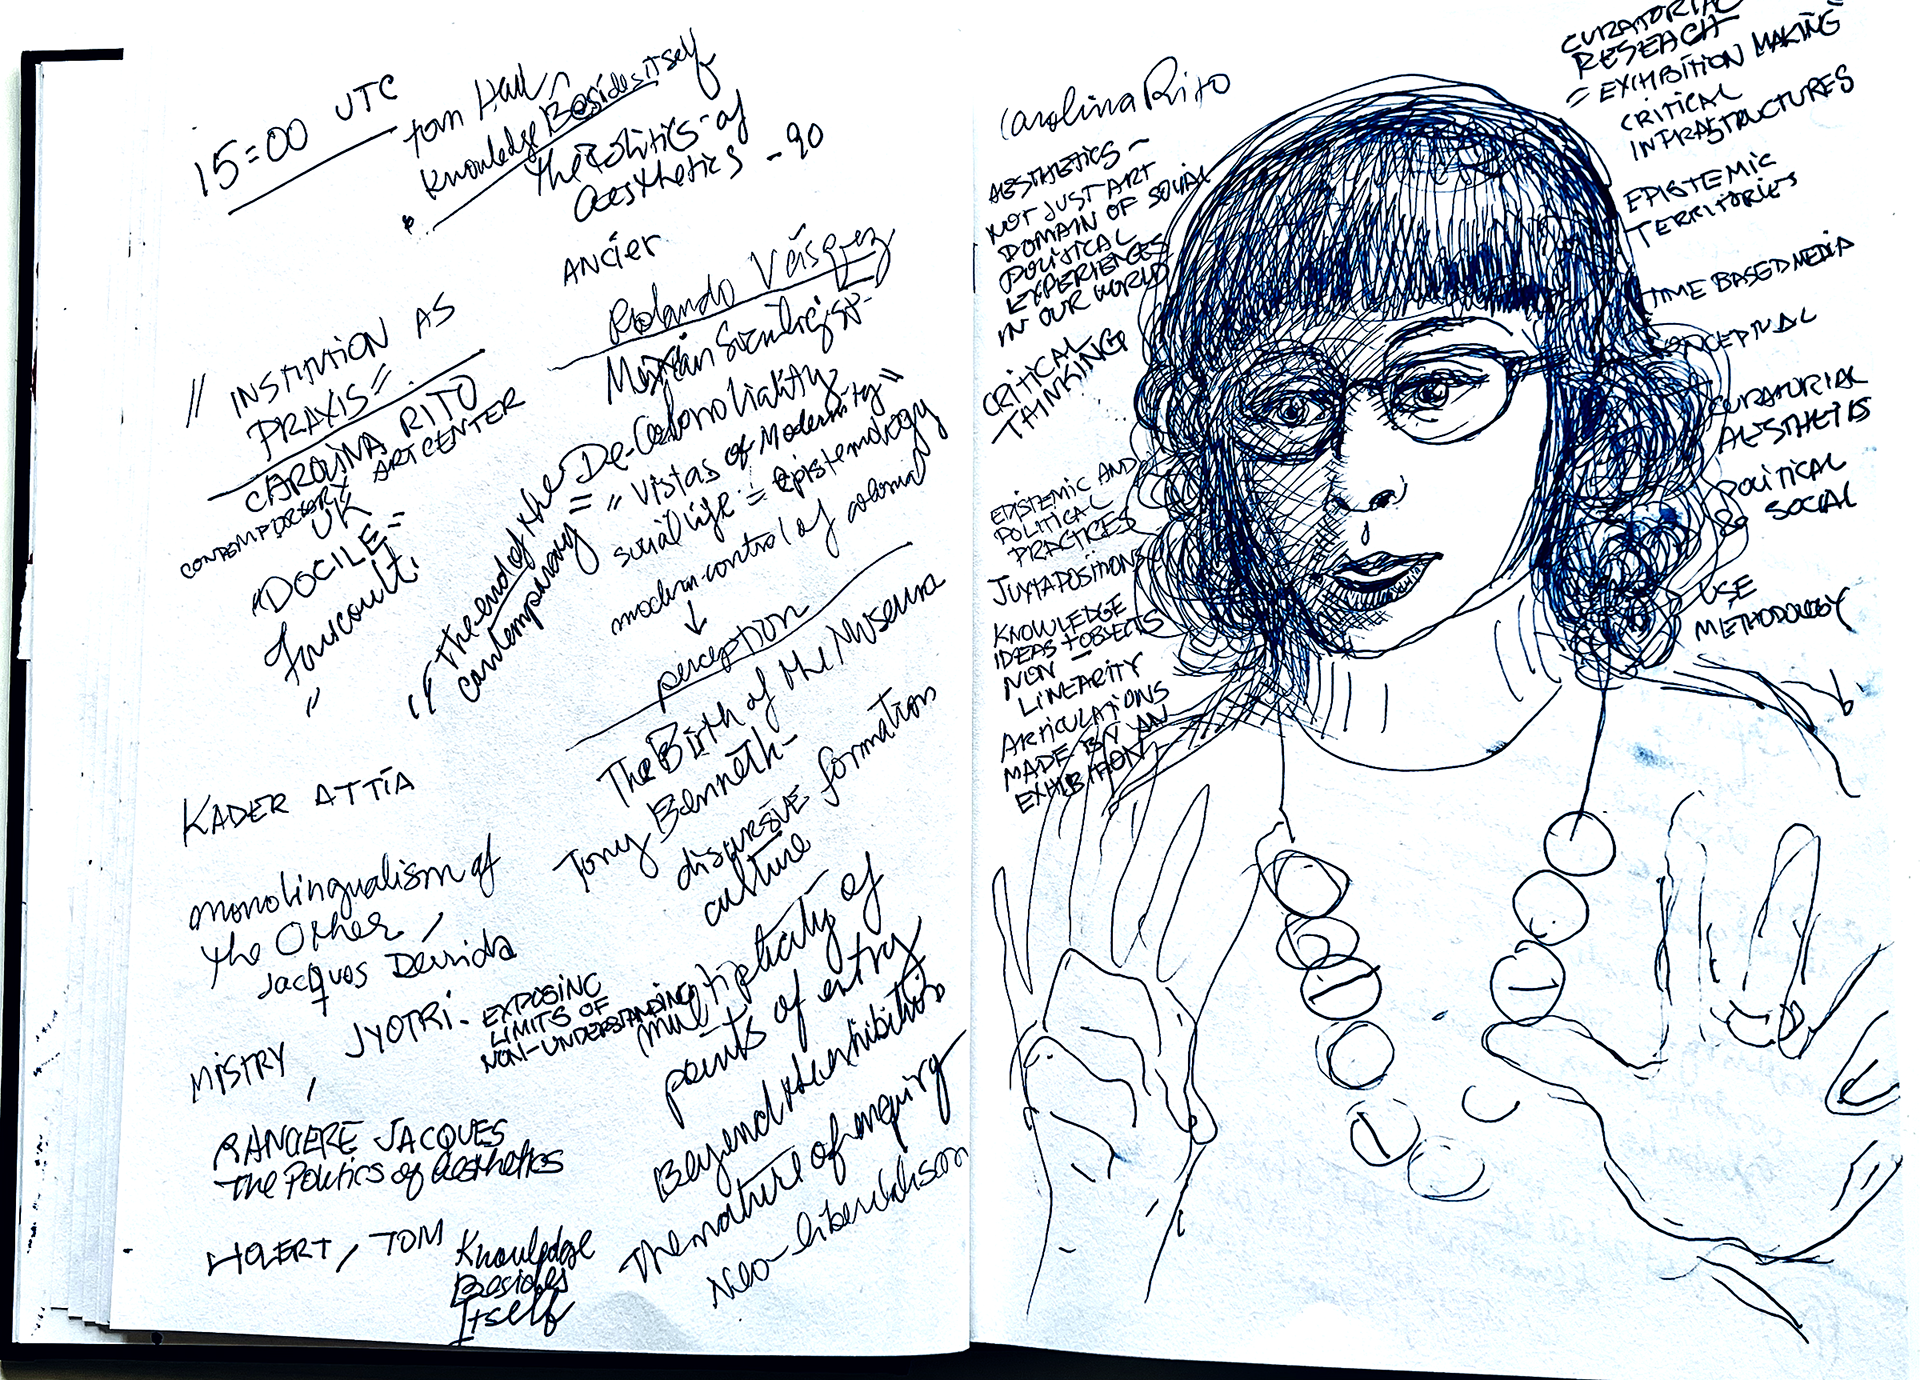 15=00 UTC
Tom Holl
Knowledge Besides itself
the Politics of
aesthetics - 90
ANCIER
Rolando Vásquez
Mexian Sociologist-
De-Colonoliality
= "Vistas of Modernity"
social life = epistemology
modern control of colonial
↓
perception
"INSTITUTION AS
PRAXIS=
CAROLINA RITO
CONTEMPORARY ART CENTER
UK
"DOCILE=
Foucoult.
"
"The end of the
contemporary
The Birth of the Museum
Tony Benneth-
discursive formation
culture
multiplicity of
points of entry
Beyend the exhibition
The nature of enquiry
Neo-liberalism
KADER ATTIA
monolingualism of
the Other,
Jacques Derrida
MISTRY, JYOTRI. EXPOSING
LIMITS OF
NON-UNDERSTANDING
RANCIERE JACQUES
The Politics of aesthetics
HOLERT, TOM Knowledge
Besides
Itself
Carolina Rito
AESTHETICS -
NOT JUST ART
DOMAIN OF SOCIAL
POLITICAL
EXPERIENCES
IN OUR WORLD
CRITICAL
THINKING
EPISTEMIC AND
POLITICAL
PRACTICES
JUXTAPOSITIONS
KNOWLEDGE
IDEAS + OBJECTS
NON -
LINEARITY
ARTICULATIONS
MADE BY AN
EXHIBITION
CURATORIAL
RESEACH
= EXIHIBITION MAKING
CRITICAL
INFRASTRUCTURES
EPISTEMIC
TERRITORIES
TIME BASED MEDIA
CONCEPTUAL
CURATORIAL
AESTHETIS
POLITICAL
& SOCIAL
USE
METHODOLOGY